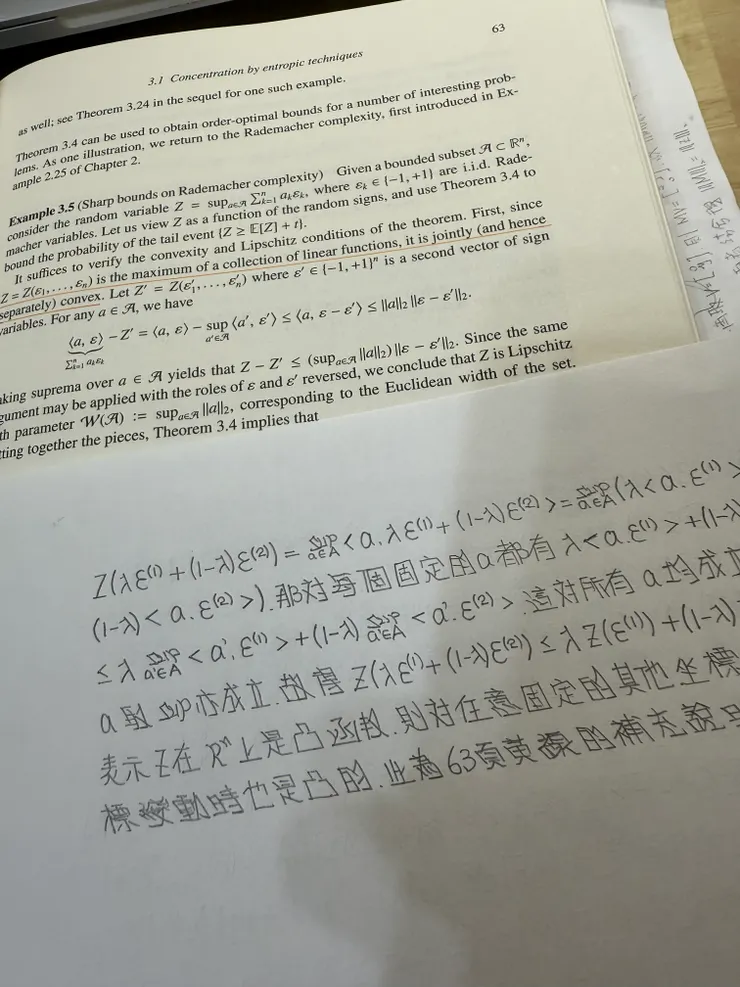 63
3.1 Concentration by entropic techniques
as well; see Theorem 3.24 in the sequel for one such example.
Theorem 3.4 can be used to obtain order-optimal bounds for a number of interesting prob-
lems. As one illustration, we return to the Rademacher complexity, first introduced in Ex-
ample 2.25 of Chapter 2.
Example 3.5 (Sharp bounds on Rademacher complexity) Given a bounded subset 𝒜 ⊂ ℝⁿ,
consider the random variable Z = sup_{a∈𝒜} ∑ⁿₖ₌₁ aₖεₖ, where εₖ ∈ {−1, +1} are i.i.d. Rade-
macher variables. Let us view Z as a function of the random signs, and use Theorem 3.4 to
bound the probability of the tail event {Z ≥ 𝔼[Z] + t}.
It suffices to verify the convexity and Lipschitz conditions of the theorem. First, since
Z = Z(ε₁, . . . , εₙ) is the maximum of a collection of linear functions, it is jointly (and hence
separately) convex. Let Z′ = Z(ε′₁, . . . , ε′ₙ) where ε′ ∈ {−1, +1}ⁿ is a second vector of sign
variables. For any a ∈ 𝒜, we have
⟨a, ε⟩ − Z′ = ⟨a, ε⟩ − sup_{a′∈𝒜} ⟨a′, ε′⟩ ≤ ⟨a, ε − ε′⟩ ≤ ‖a‖₂ ‖ε − ε′‖₂.
∑ⁿₖ₌₁ aₖεₖ
aking suprema over a ∈ 𝒜 yields that Z − Z′ ≤ (sup_{a∈𝒜} ‖a‖₂) ‖ε − ε′‖₂. Since the same
gument may be applied with the roles of ε and ε′ reversed, we conclude that Z is Lipschitz
th parameter 𝒲(𝒜) := sup_{a∈𝒜} ‖a‖₂, corresponding to the Euclidean width of the set.
tting together the pieces, Theorem 3.4 implies that
Z(λε⁽¹⁾ + (1−λ)ε⁽²⁾) = sup_{a∈A} <a, λε⁽¹⁾ + (1−λ)ε⁽²⁾> = sup_{a∈A} (λ<a, ε⁽¹⁾>
(1−λ)<a, ε⁽²⁾>). 那對每個固定的a都有 λ<a, ε⁽¹⁾> + (1−λ)
≤ λ sup_{a′∈A} <a′, ε⁽¹⁾> + (1−λ) sup_{a′∈A} <a′, ε⁽²⁾>. 這對所有 a 均成立
a 取 sup 亦成立. 故得 Z(λε⁽¹⁾ + (1−λ)ε⁽²⁾) ≤ λZ(ε⁽¹⁾) + (1−λ)
表示 Z 在 ℝⁿ 上是凸函數. 則對任意固定的其他坐標
標變動時也是凸的. 此為 63 頁黃線的補充說